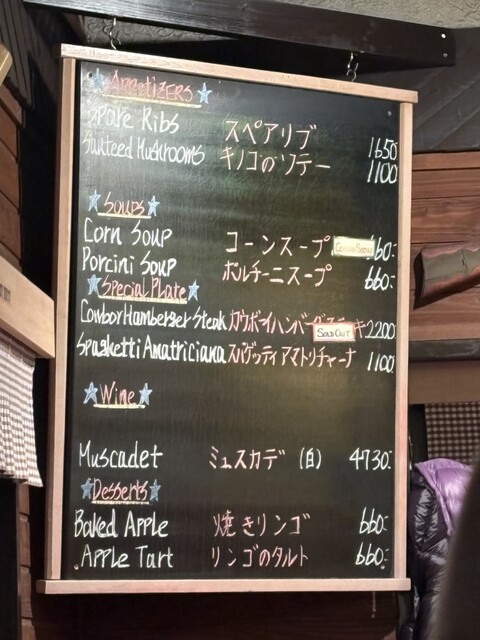 ★Appetizers★
Spare Ribs スペアリブ 1650
Sauteed Mushrooms キノコのソテー 1100
★Soups★
Corn Soup コーンスープ 60-
Porcini Soup ポルチーニスープ 660-
★Special Plate★
Cowbor Hamberger Steak カウボーイハンバーグステーキ 2200
SOLD OUT
Spaghetti Amatriciana スパゲッティアマトリチャーナ 1100
★Wine★
Muscadet ミュスカデ (白) 4730-
★Desserts★
Baked Apple 焼きリンゴ 660-
Apple Tart リンゴのタルト 660-